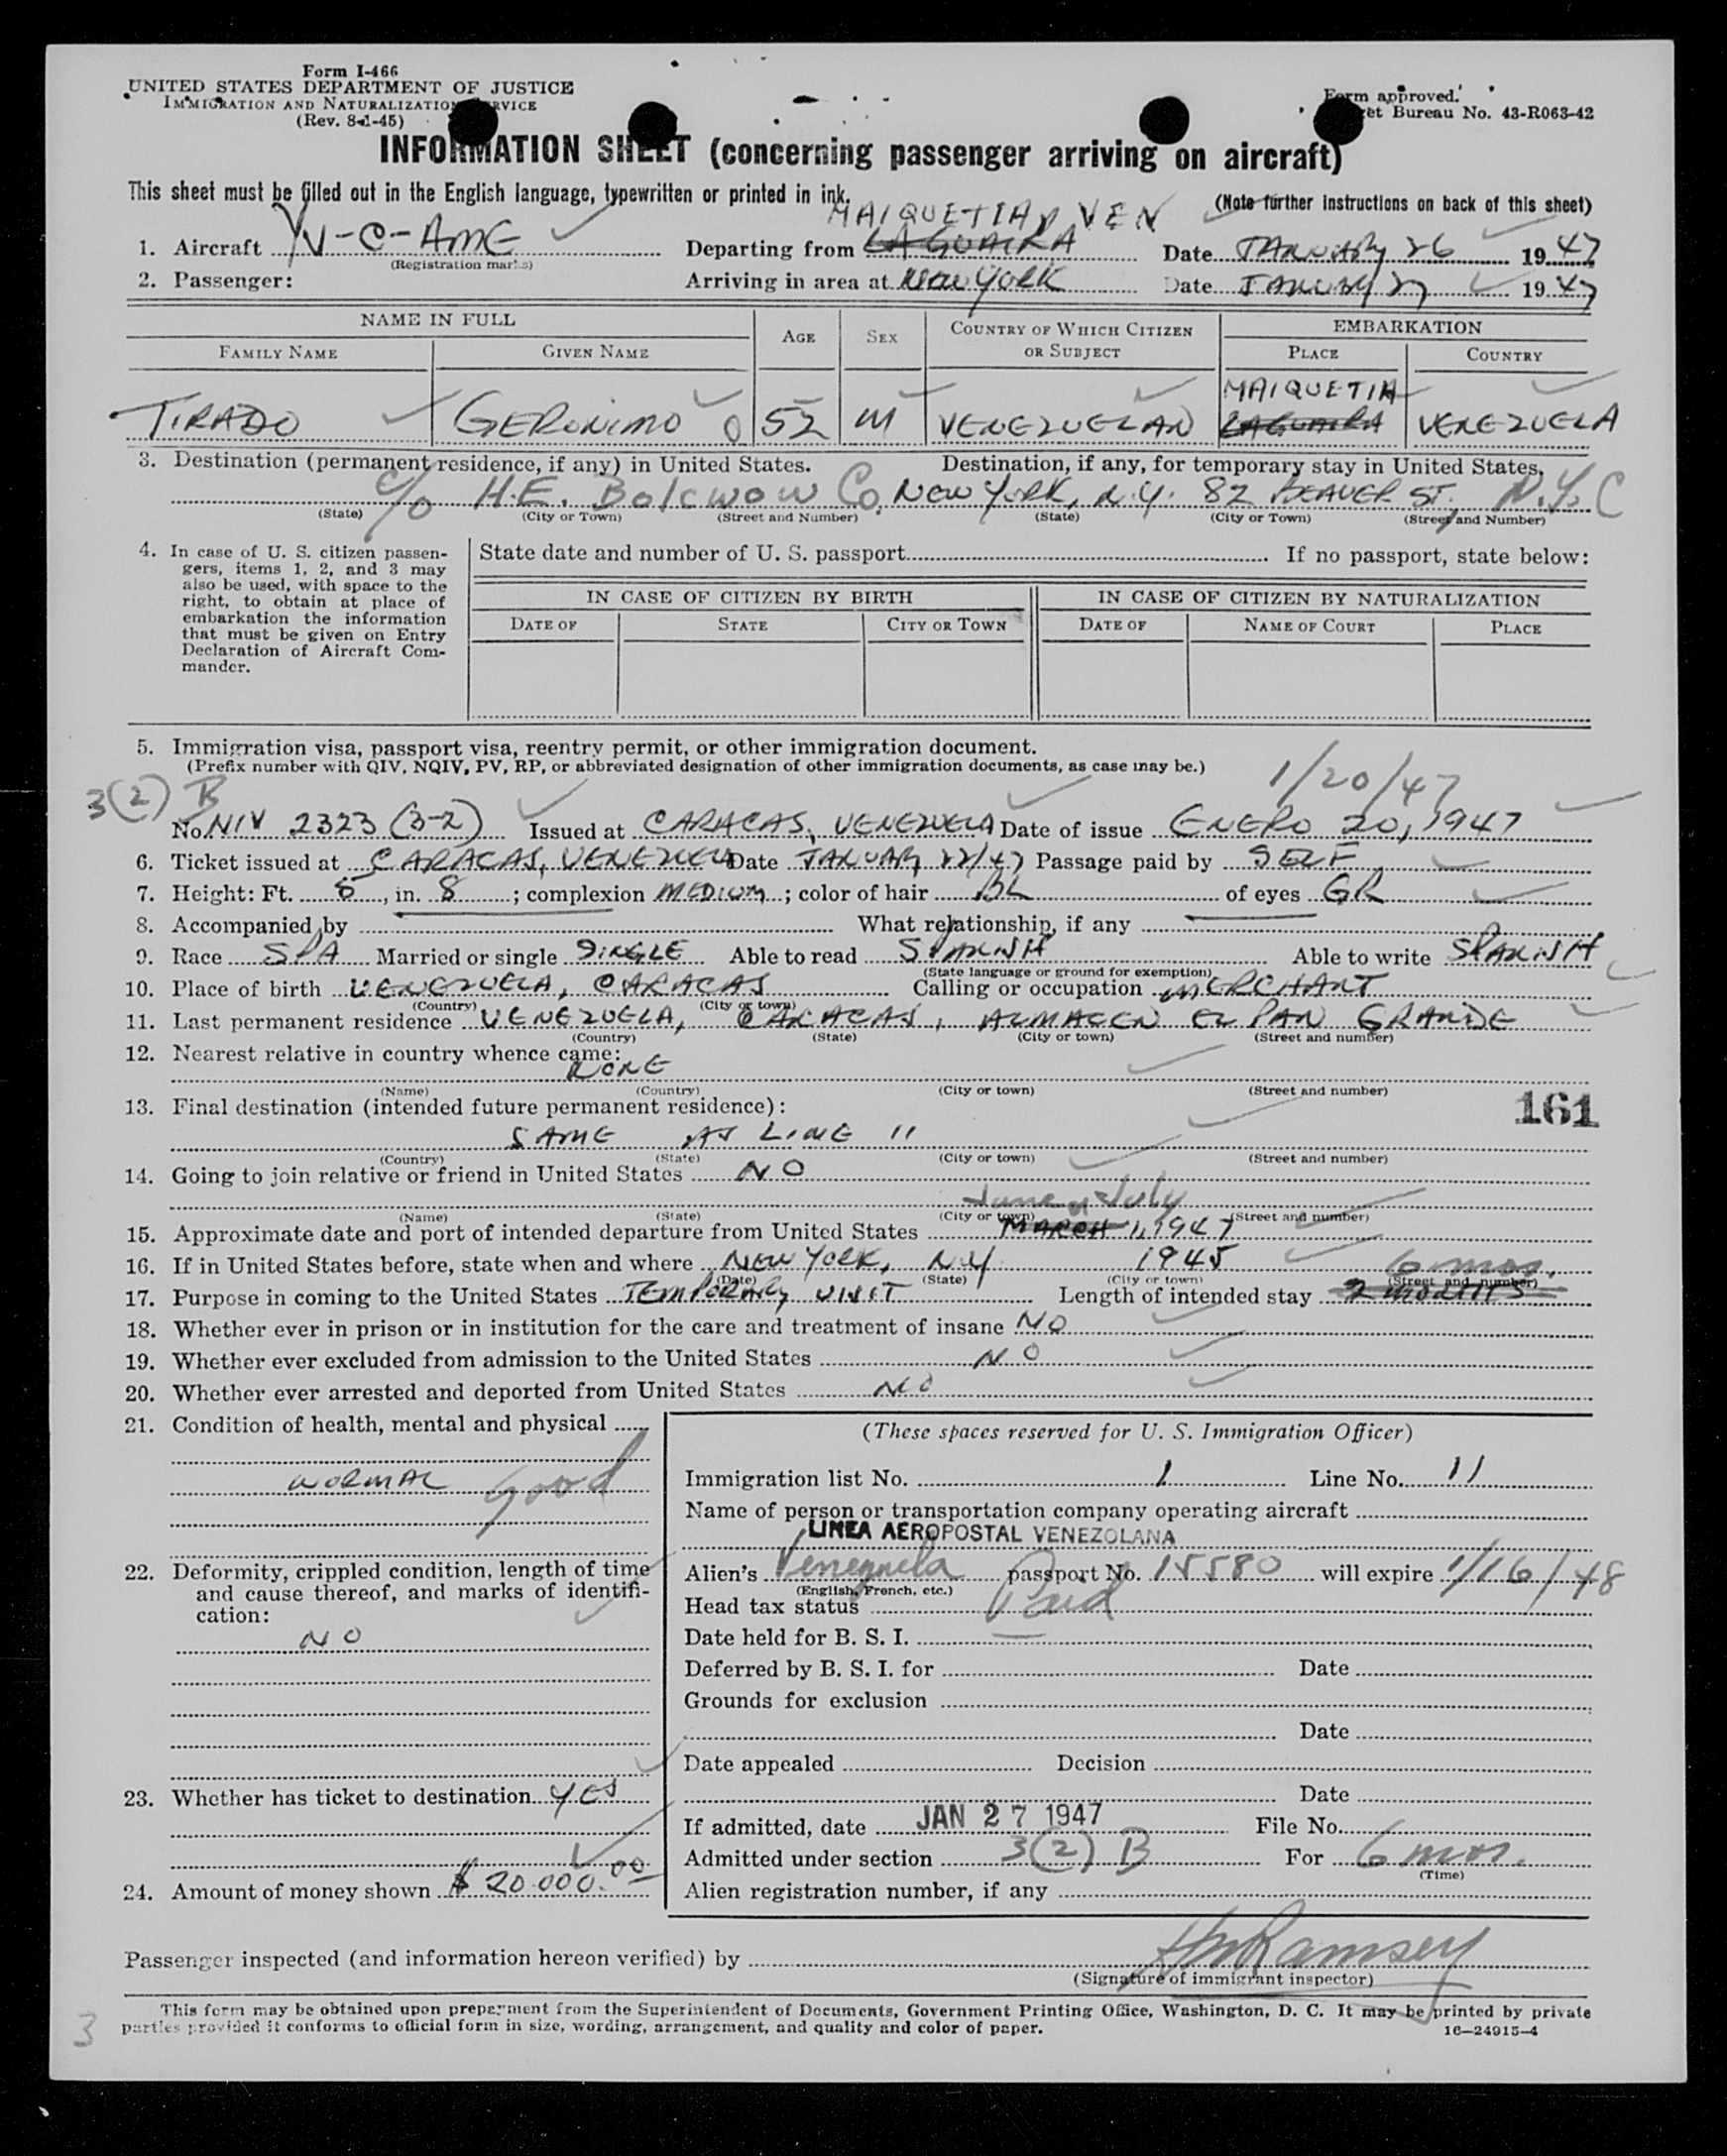 Form I-466
UNITED STATES DEPARTMENT OF JUSTICE
IMMIGRATION AND NATURALIZATION SERVICE
(Rev. 8-1-45)
Form approved.
Bureau No. 43-R063-42
INFORMATION SHEET (concerning passenger arriving on aircraft)
This sheet must be filled out in the English language, typewritten or printed in ink.
(Note further instructions on back of this sheet)
MAIQUETIA, VEN
1. Aircraft YV-C-AME Departing from LA GUAIRA Date JANUARY 26 1947
(Registration marks)
2. Passenger: Arriving in area at NEW YORK Date JANUARY 27 1947
NAME IN FULL AGE SEX COUNTRY OF WHICH CITIZEN OR SUBJECT EMBARKATION
FAMILY NAME GIVEN NAME PLACE COUNTRY
MAIQUETIA
TIRADO GERONIMO 52 M VENEZUELAN LAGUAIRA VENEZUELA
3. Destination (permanent residence, if any) in United States. Destination, if any, for temporary stay in United States.
c/o H.E. Co, NEW YORK, N.Y. 82 BEAVER ST, N.Y.C
(State) (City or Town) (Street and Number) (State) (City or Town) (Street and Number)
4. In case of U. S. citizen passen-
gers, items 1, 2, and 3 may
also be used, with space to the
right, to obtain at place of
embarkation the information
that must be given on Entry
Declaration of Aircraft Com-
mander.
State date and number of U. S. passport If no passport, state below:
IN CASE OF CITIZEN BY BIRTH IN CASE OF CITIZEN BY NATURALIZATION
DATE OF STATE CITY OR TOWN DATE OF NAME OF COURT PLACE
5. Immigration visa, passport visa, reentry permit, or other immigration document.
(Prefix number with QIV, NQIV, PV, RP, or abbreviated designation of other immigration documents, as case may be.)
3(2) B 1/20/47
No. NIV 2323 (3-2) Issued at CARACAS, VENEZUELA Date of issue ENERO 20, 1947
6. Ticket issued at CARACAS, VENEZUELA Date JANUARY 22/47 Passage paid by SELF
7. Height: Ft. 5, in. 8; complexion MEDIUM; color of hair BL of eyes GR
8. Accompanied by What relationship, if any
9. Race SPA Married or single SINGLE Able to read SPANISH Able to write SPANISH
(State language or ground for exemption)
10. Place of birth VENEZUELA, CARACAS Calling or occupation MERCHANT
(Country) (City or town)
11. Last permanent residence VENEZUELA, CARACAS, ALMACEN EL PAN GRANDE
(Country) (State) (City or town) (Street and number)
12. Nearest relative in country whence came:
NONE
(Name) (Country) (City or town) (Street and number)
161
13. Final destination (intended future permanent residence):
SAME AS LINE 11
(Country) (State) (City or town) (Street and number)
14. Going to join relative or friend in United States NO
June or July
(Name) (State) (City or town) (Street and number)
15. Approximate date and port of intended departure from United States MARCH 1, 1947
16. If in United States before, state when and where NEW YORK, N.Y 1945 6 mos.
(Date) (State) (City or town) (Street and number)
17. Purpose in coming to the United States TEMPORARY VISIT Length of intended stay 2 MONTHS
18. Whether ever in prison or in institution for the care and treatment of insane NO
19. Whether ever excluded from admission to the United States NO
20. Whether ever arrested and deported from United States NO
21. Condition of health, mental and physical
NORMAL good
22. Deformity, crippled condition, length of time
and cause thereof, and marks of identifi-
cation:
NO
23. Whether has ticket to destination YES
24. Amount of money shown $ 20.000.00
(These spaces reserved for U. S. Immigration Officer)
Immigration list No. 1 Line No. 11
Name of person or transportation company operating aircraft
LINEA AEROPOSTAL VENEZOLANA
Alien's Venezuela passport No. 15580 will expire 1/16/48
(English, French, etc.)
Head tax status Paid
Date held for B. S. I.
Deferred by B. S. I. for Date
Grounds for exclusion
Date
Date appealed Decision
Date
If admitted, date JAN 27 1947 File No.
Admitted under section 3(2) B For 6 mos.
(Time)
Alien registration number, if any
Passenger inspected (and information hereon verified) by Ramsey
(Signature of immigrant inspector)
This form may be obtained upon prepayment from the Superintendent of Documents, Government Printing Office, Washington, D. C. It may be printed by private
parties provided it conforms to official form in size, wording, arrangement, and quality and color of paper.
16—24915-4
3